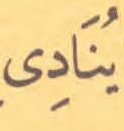 يُنَادِي